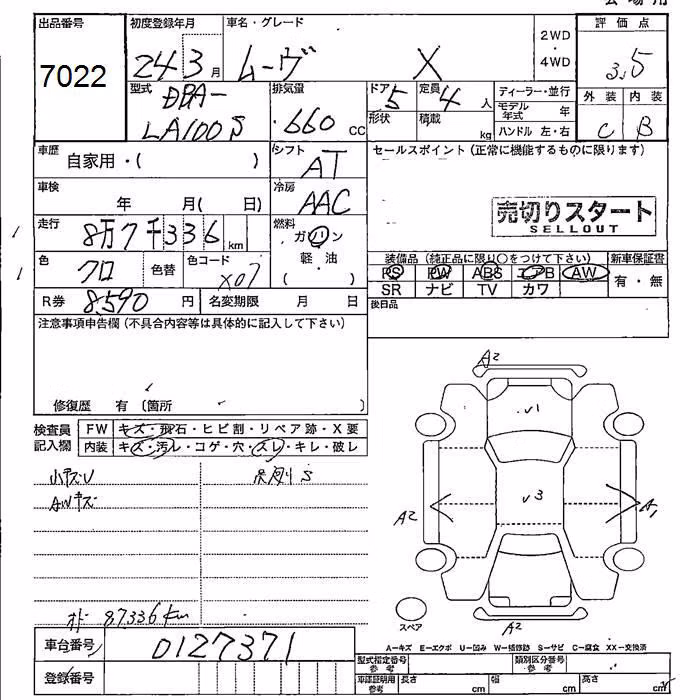 出品番号
7022
初度登録年月
24 3月
車名・グレード
ムーヴ X
2WD
・
4WD
評価点
3.5
外装 内装
C B
型式
DBA-
LA100S
排気量
660 CC
ドア 5
形状
定員 4人
積載 kg
ディーラー・並行
モデル年式 年
ハンドル 左・右
車歴
自家用・( )
シフト
AT
セールスポイント(正常に機能するものに限ります)
車検
年 月( 日)
冷房
AAC
売切りスタート
SELLOUT
走行
8万7千336km
燃料
ガソリン
軽・油
( )
色
クロ
色替
色コード
X07
装備品(純正品に限り○をつけて下さい)
PS PW ABS エアB AW
SR ナビ TV カワ
新車保証書
有・無
R券 8590円
名変期限 月 日
後日品
注意事項申告欄(不具合内容等は具体的に記入して下さい)
修復歴 有〔箇所
検査員
記入欄
FW キズ・飛石・ヒビ割・リペア跡・X要
内装 キズ・汚レ・コゲ・穴・スレ・キレ・破レ
小キズU
AWキズ
S
オド 87336km
A2
U1
U3
A2
A1
A2
スペア
A−キズ E−エクボ U−凹み W−補修跡 S−サビ C−腐食 XX−交換済
車台番号
0127371
登録番号
型式指定番号
参考
類別区分番号
参考
車庫証明用
参考
長さ cm
幅 cm
高さ cm